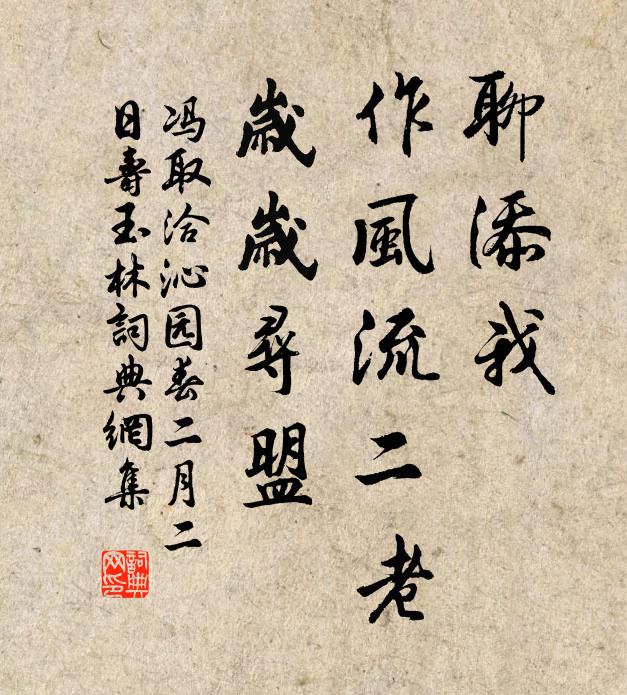 聊添我
作風流二老
歲歲尋盟
冯取洽沁园春二月二
日壽玉林詞典網集
詞典网印